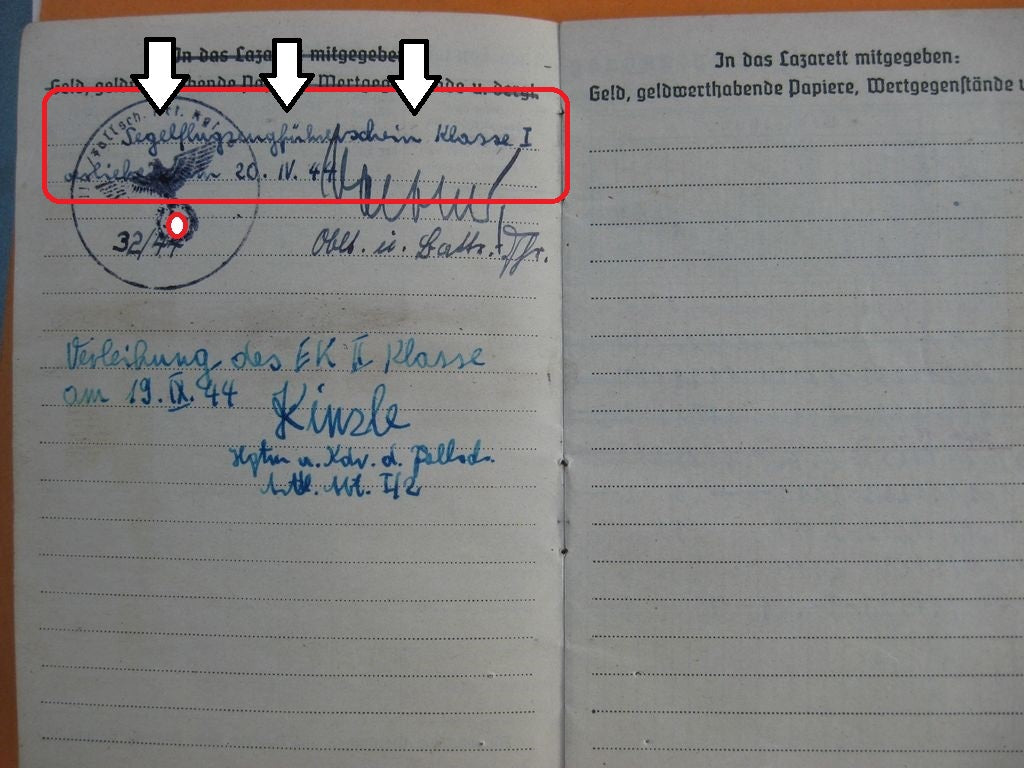 In das Lazarett mitgegeben:
Geld, geldwerthabende Papiere, Wertgegenstände u. dergl.
Segelflugzeugführerschein Klasse I
verliehen am 20. IV. 44
32/44
Oblt. u. Battr.-Fhr.
Verleihung des EK II Klasse
am 19. IX. 44
Kinzle
Hptm u. Kdr. d. Fallsch.
Abt. I/2
In das Lazarett mitgegeben:
Geld, geldwerthabende Papiere, Wertgegenstände u